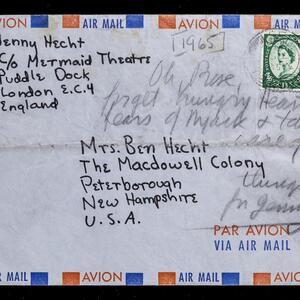 AVION AIR MAIL AVION AIR MAIL
Jenny Hecht
C/o Mermaid Theatre
Puddle Dock
London E.C.4
England
[1965]
Oh, Rose,
forget hungry Hea
tears of
Mrs. Ben Hecht
The Macdowell Colony
Peterborough
New Hampshire
U.S.A.
PAR AVION
VIA AIR MAIL
AIR MAIL AVION AIR MAIL AVION AIR MAIL